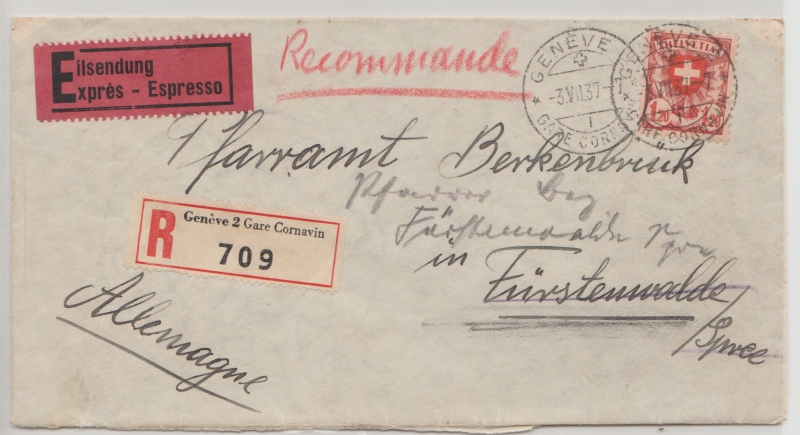 Eilsendung
Exprès - Espresso
Recommande
GENÈVE
-3.VII.37-
GARE CORNAVIN
HELVETIA
1.20 1.20
Pfarramt Berkenbruck
Pfarrer
Fürstenwalde Spree
in
Fürstenwalde/
Spree
R
Genève 2 Gare Cornavin
709
Allemagne